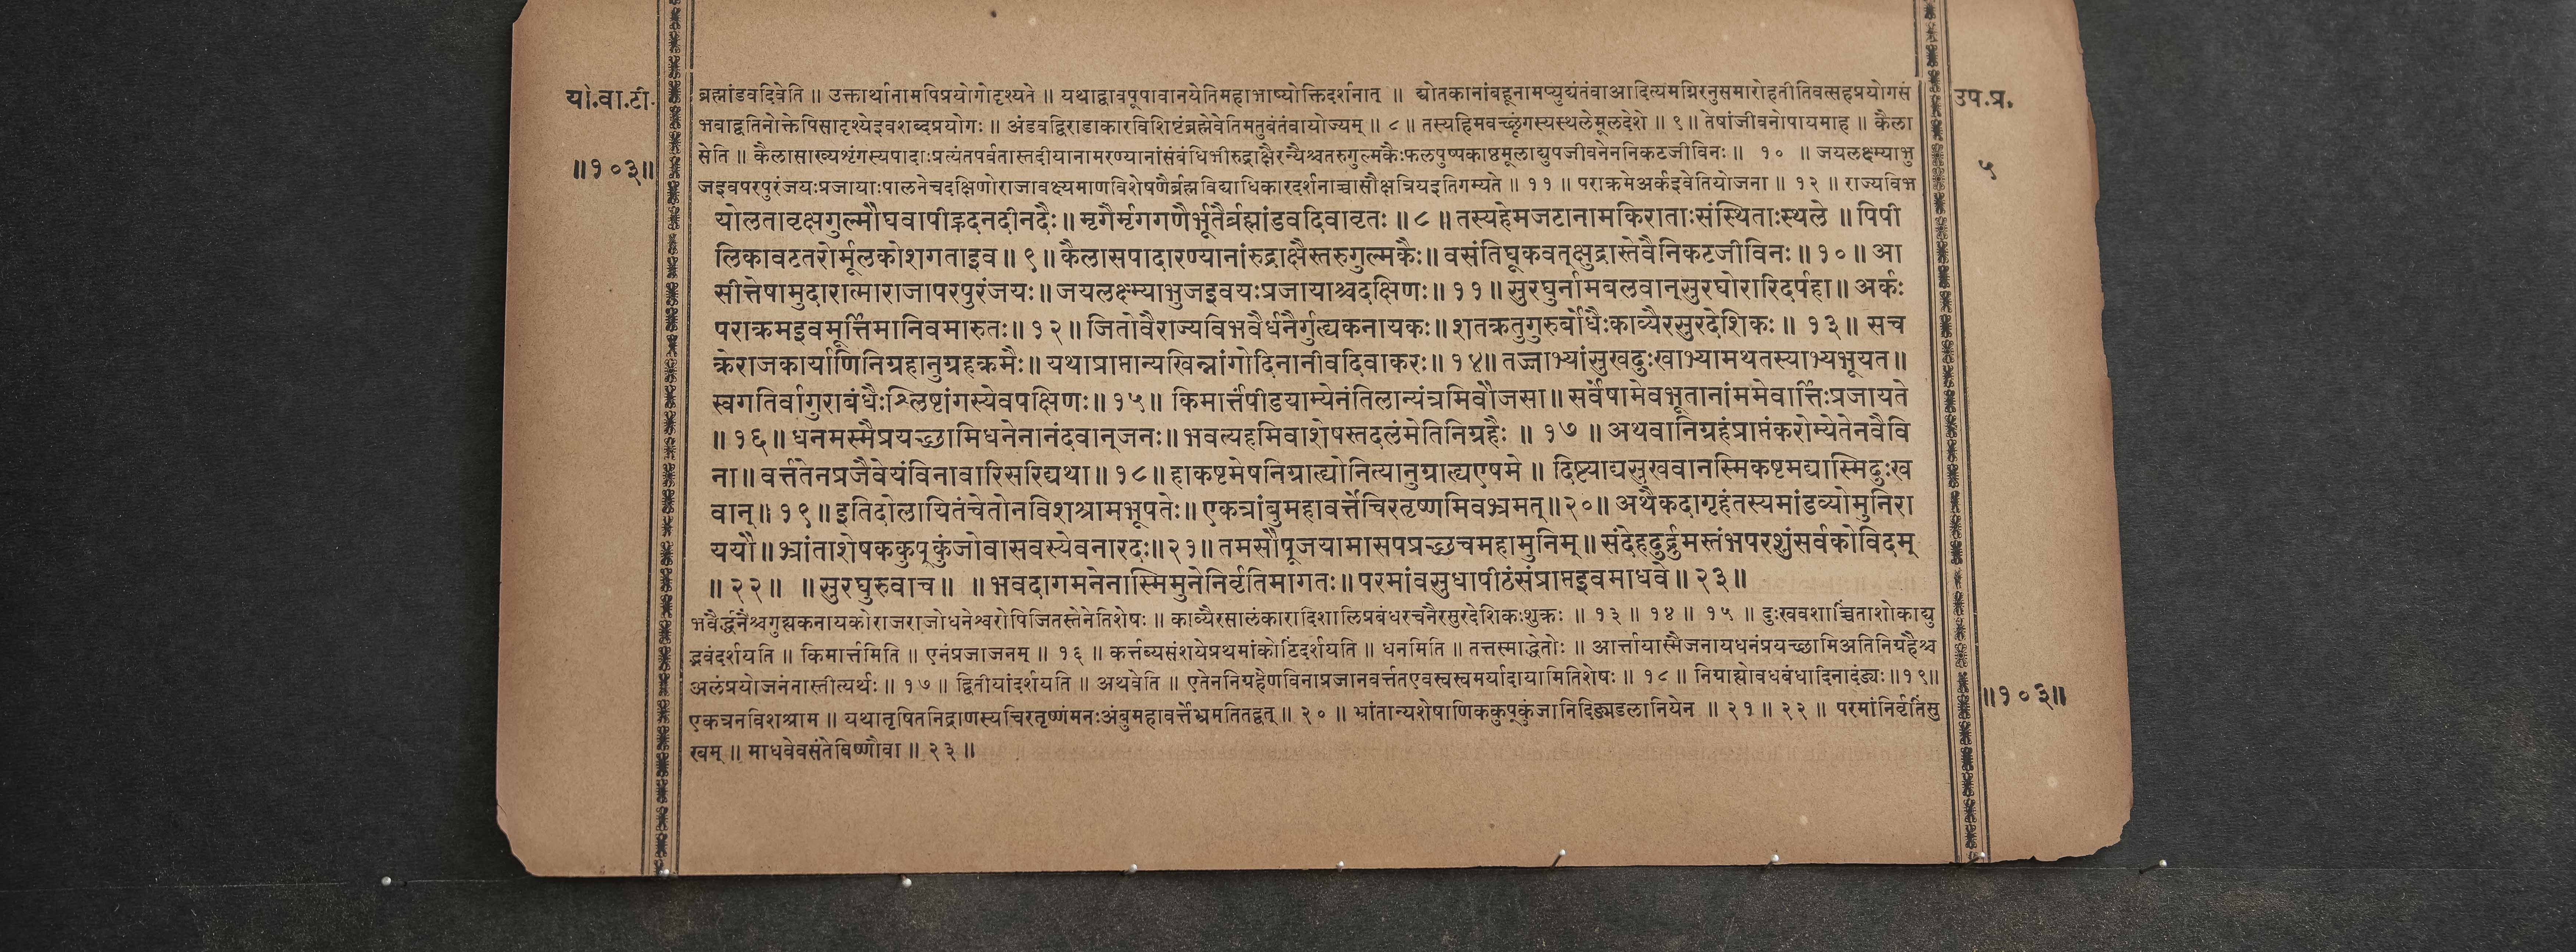 यो.वा.टी.
॥१०३॥
ब्रह्मांडवदिवेति ॥ उक्तार्थानामपिप्रयोगोदृश्यते ॥ यथाद्वावपूपावानयेतिमहाभाष्योक्तिदर्शनात् ॥ द्योतकानांबहूनामप्युद्यंतंवाआदित्यमग्निरनुसमारोहतीतिवत्सहप्रयोगसं
भवाद्वतिनोक्तेपिसादृश्येइवशब्दप्रयोगः ॥ अंडवद्विराडाकारविशिष्टंब्रह्मेवेतिमतुबंतंवायोज्यम् ॥ ८ ॥ तस्यहिमवच्छृंगस्यस्थलेमूलदेशे ॥ ९ ॥ तेषांजीवनोपायमाह ॥ कैला
सेति ॥ कैलासाख्यशृंगस्यपादाःप्रत्यंतपर्वतास्तदीयानामरण्यानांसंबंधिभीरुद्राक्षैरन्यैश्चतरुगुल्मकैःफलपुष्पकाष्ठमूलाद्युपजीवनेननिकटजीविनः ॥ १० ॥ जयलक्ष्म्याभु
जइवपरपुरंजयःप्रजायाःपालनेचदक्षिणोराजावक्ष्यमाणविशेषणैर्ब्रह्मविद्याधिकारदर्शनाच्चासौक्षत्रियइतिगम्यते ॥ ११ ॥ पराक्रमेअर्कइवेतियोजना ॥ १२ ॥ राज्यविभ
योलतावृक्षगुल्मौघवापीह्रदनदीनदैः ॥ मृगैर्मृगगणैर्भूतैर्ब्रह्मांडवदिवावृतः ॥ ८ ॥ तस्यहेमजटानामकिराताःसंस्थिताःस्थले ॥ पिपी
लिकावटतरोर्मूलकोशगताइव ॥ ९ ॥ कैलासपादारण्यानांरुद्राक्षैस्तरुगुल्मकैः ॥ वसंतिघूकवत्क्षुद्रास्तेवैनिकटजीविनः ॥ १० ॥ आ
सीत्तेषामुदारात्माराजापरपुरंजयः ॥ जयलक्ष्म्याभुजइवयःप्रजायाश्चदक्षिणः ॥ ११ ॥ सुरघुर्नामबलवान्सुरघोरारिदर्पहा ॥ अर्कः
पराक्रमइवमूर्त्तिमानिवमारुतः ॥ १२ ॥ जितोवैराज्यविभवैर्धनैर्गुह्यकनायकः ॥ शतक्रतुगुरुर्बोधैःकाव्यैरसुरदेशिकः ॥ १३ ॥ सच
क्रेराजकार्याणिनिग्रहानुग्रहक्रमैः ॥ यथाप्राप्तान्यखिन्नांगोदिनानीवदिवाकरः ॥ १४ ॥ तज्जाभ्यांसुखदुःखाभ्यामथतस्याभ्यभूयत ॥
स्वगतिर्वागुराबंधैःश्लिष्टांगस्येवपक्षिणः ॥ १५ ॥ किमार्त्तंपीडयाम्येनंतिलान्यंत्रमिवौजसा ॥ सर्वेषामेवभूतानांममेवार्त्तिःप्रजायते
॥ १६ ॥ धनमस्मैप्रयच्छामिधनेनानंदवान्जनः ॥ भवत्यहमिवाशेषस्तदलंमेतिनिग्रहैः ॥ १७ ॥ अथवानिग्रहंप्राप्तंकरोम्येतेनवैवि
ना ॥ वर्त्ततेनप्रजैवेयंविनावारिसरिद्यथा ॥ १८ ॥ हाकष्टमेषनिग्राह्योनित्यानुग्राह्यएषमे ॥ दिष्ट्याद्यसुखवानस्मिकष्टमद्यास्मिदुःख
वान् ॥ १९ ॥ इतिदोलायितंचेतोनविशश्रामभूपतेः ॥ एकत्रांबुमहावर्त्तेचिरतृष्णमिवभ्रमत् ॥ २० ॥ अथैकदागृहंतस्यमांडव्योमुनिरा
ययौ ॥ भ्रांताशेषककुप्कुंजोवासवस्येवनारदः ॥ २१ ॥ तमसौपूजयामासपप्रच्छचमहामुनिम् ॥ संदेहदुर्द्रुमस्तंभपरशुंसर्वकोविदम्
॥ २२ ॥ ॥ सुरघुरुवाच ॥ ॥ भवदागमनेनास्मिमुनेनिर्वृतिमागतः ॥ परमांवसुधापीठंसंप्राप्तइवमाधवे ॥ २३ ॥
भवैर्द्धनैश्चगुह्यकनायकोराजराजोधनेश्वरोपिजितस्तेनेतिशेषः ॥ काव्यैरसालंकारादिशालिप्रबंधरचनैरसुरदेशिकःशुक्रः ॥ १३ ॥ १४ ॥ १५ ॥ दुःखवशाच्चिंताशोकाद्यु
द्भवंदर्शयति ॥ किमार्त्तमिति ॥ एनंप्रजाजनम् ॥ १६ ॥ कर्त्तव्यसंशयेप्रथमांकोटिंदर्शयति ॥ धनमिति ॥ तत्तस्माद्धेतोः ॥ आर्त्तायास्मैजनायधनंप्रयच्छामिअतिनिग्रहैश्च
अलंप्रयोजनंनास्तीत्यर्थः ॥ १७ ॥ द्वितीयांदर्शयति ॥ अथवेति ॥ एतेननिग्रहेणविनाप्रजानवर्त्ततएवस्वस्वमर्यादायामितिशेषः ॥ १८ ॥ निग्राह्योवधबंधादिनादंड्यः ॥ १९ ॥
एकत्रनविशश्राम ॥ यथातृषितनिद्राणस्यचिरतृष्णंमनःअंबुमहावर्त्तेभ्रमतितद्वत् ॥ २० ॥ भ्रांतान्यशेषाणिककुप्कुंजानिदिङ्मंडलानियेन ॥ २१ ॥ २२ ॥ परमांनिर्वृतिंसु
खम् ॥ माधवेवसंतेविष्णौवा ॥ २३ ॥
उप.प्र.
५
॥१०३॥